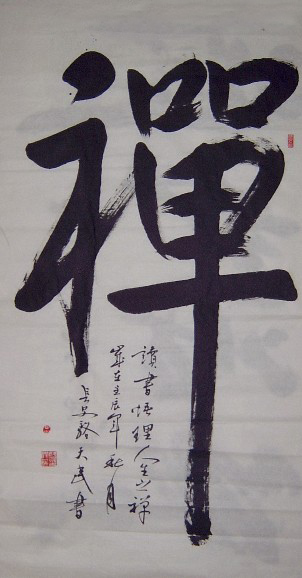 禪
讀書悟理人生之禪
歲在壬辰年秋月
長安路天民書